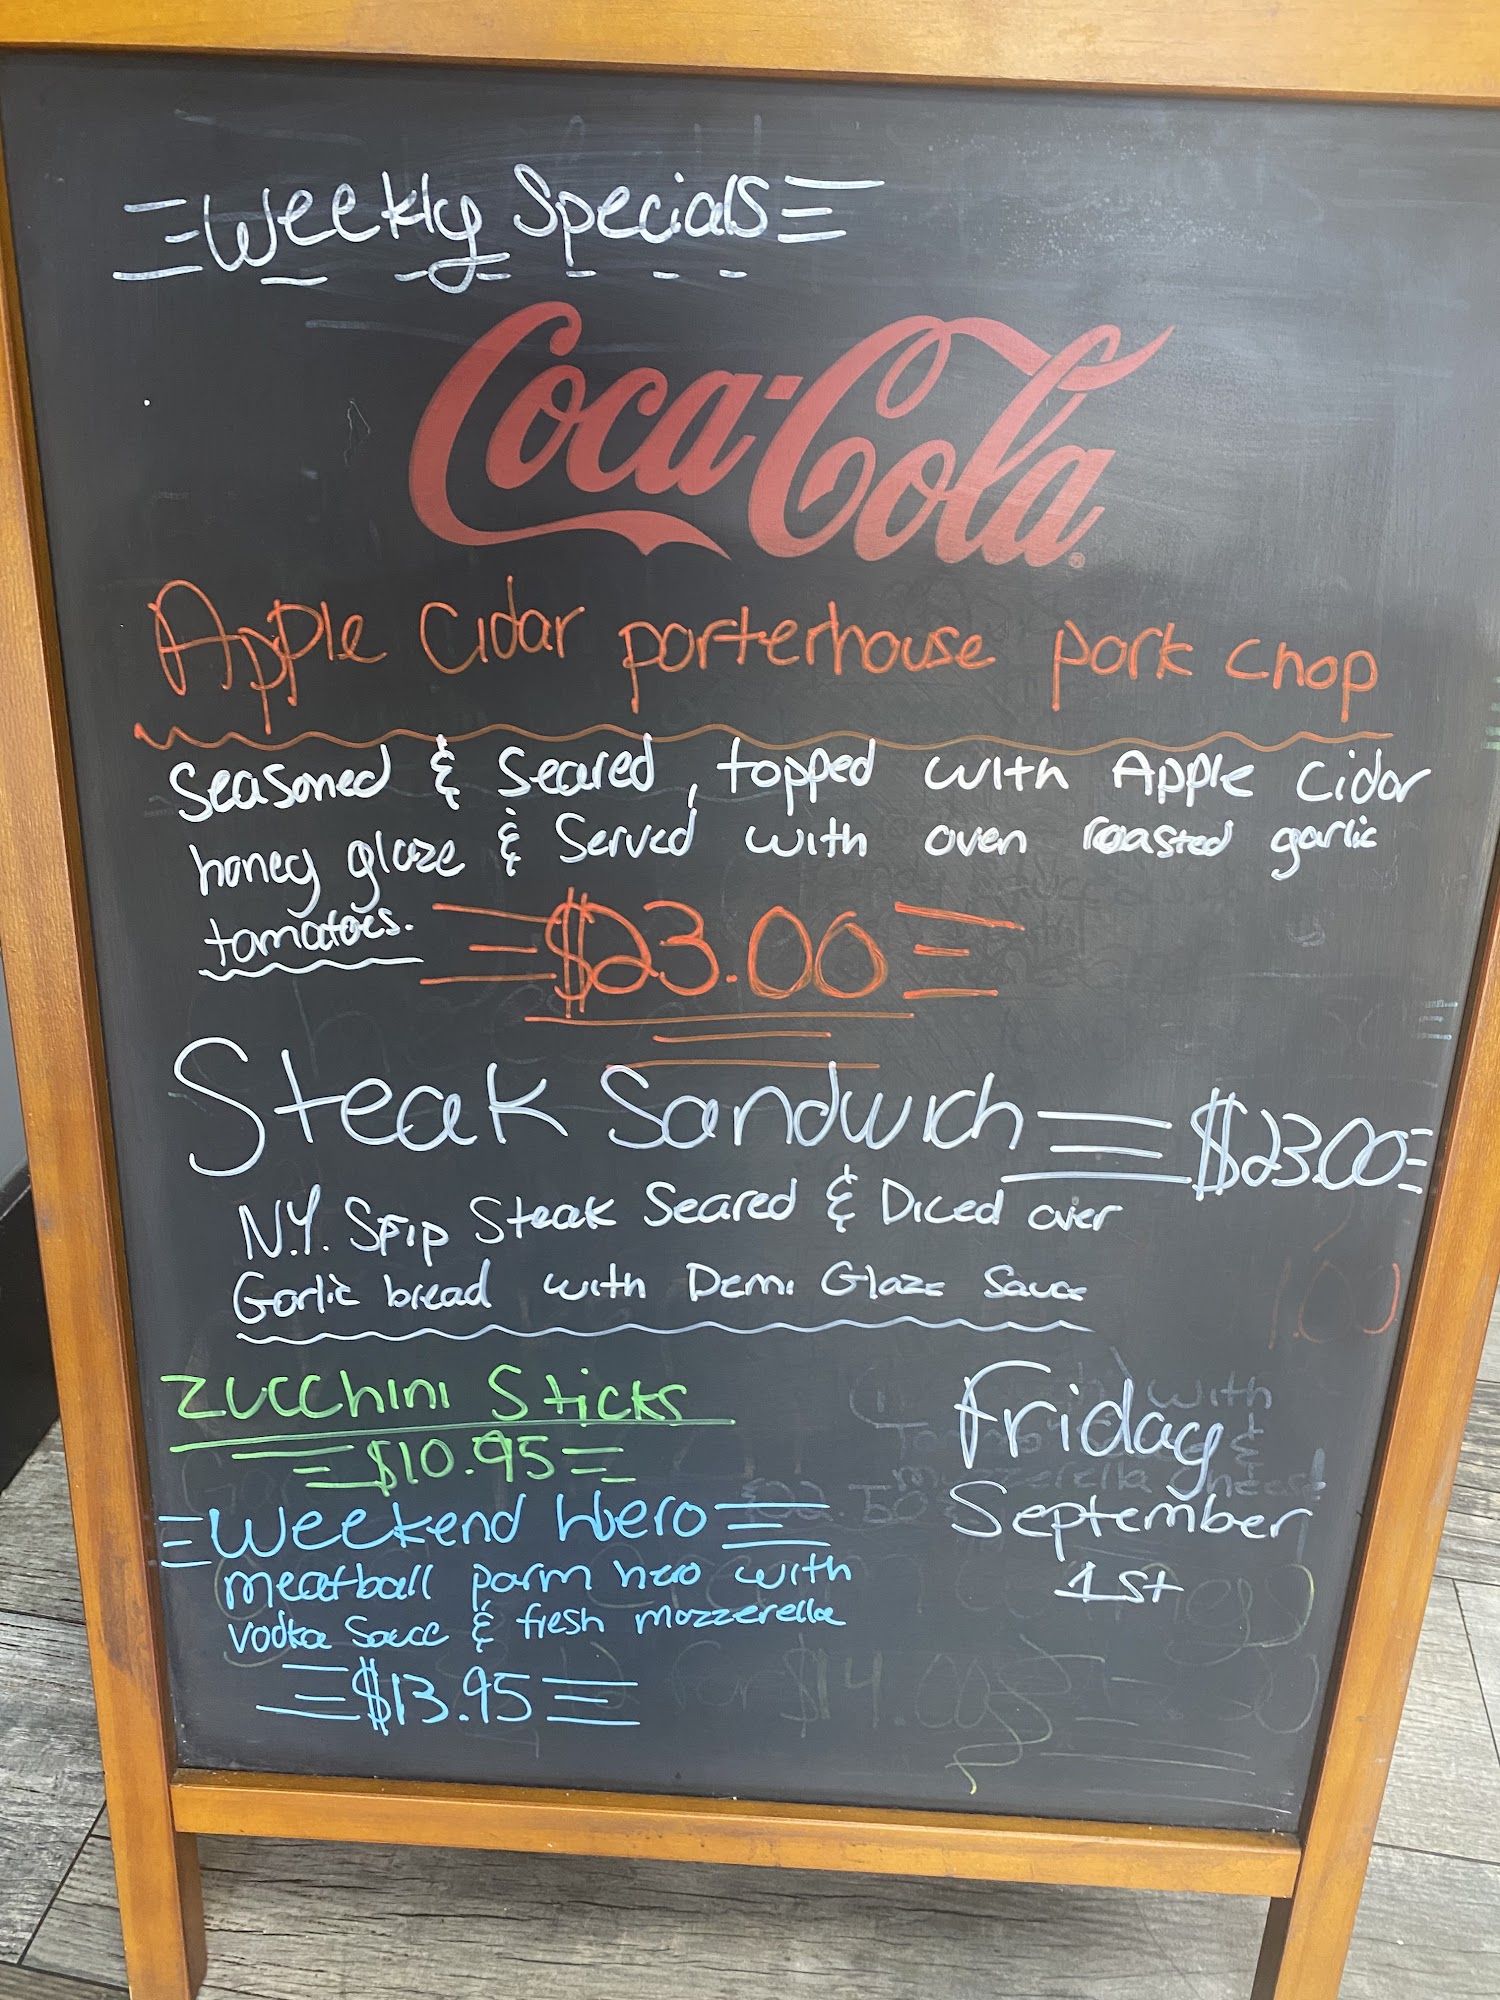 Weekly Specials
Coca-Cola
Apple Cidar porterhouse pork chop
Seasoned & Seared, topped with Apple Cidar
honey glaze & Served with oven roasted garlic
tomatoes.
$23.00
Steak Sandwich $23.00
N.Y. Srip Steak Seared & Diced over
Garlic bread with Demi Glaze Sauce
Zucchini Sticks
$10.95
Weekend Hero
meatball parm hero with
vodka Sauce & fresh mozzerella
$13.95
Friday
September
1st